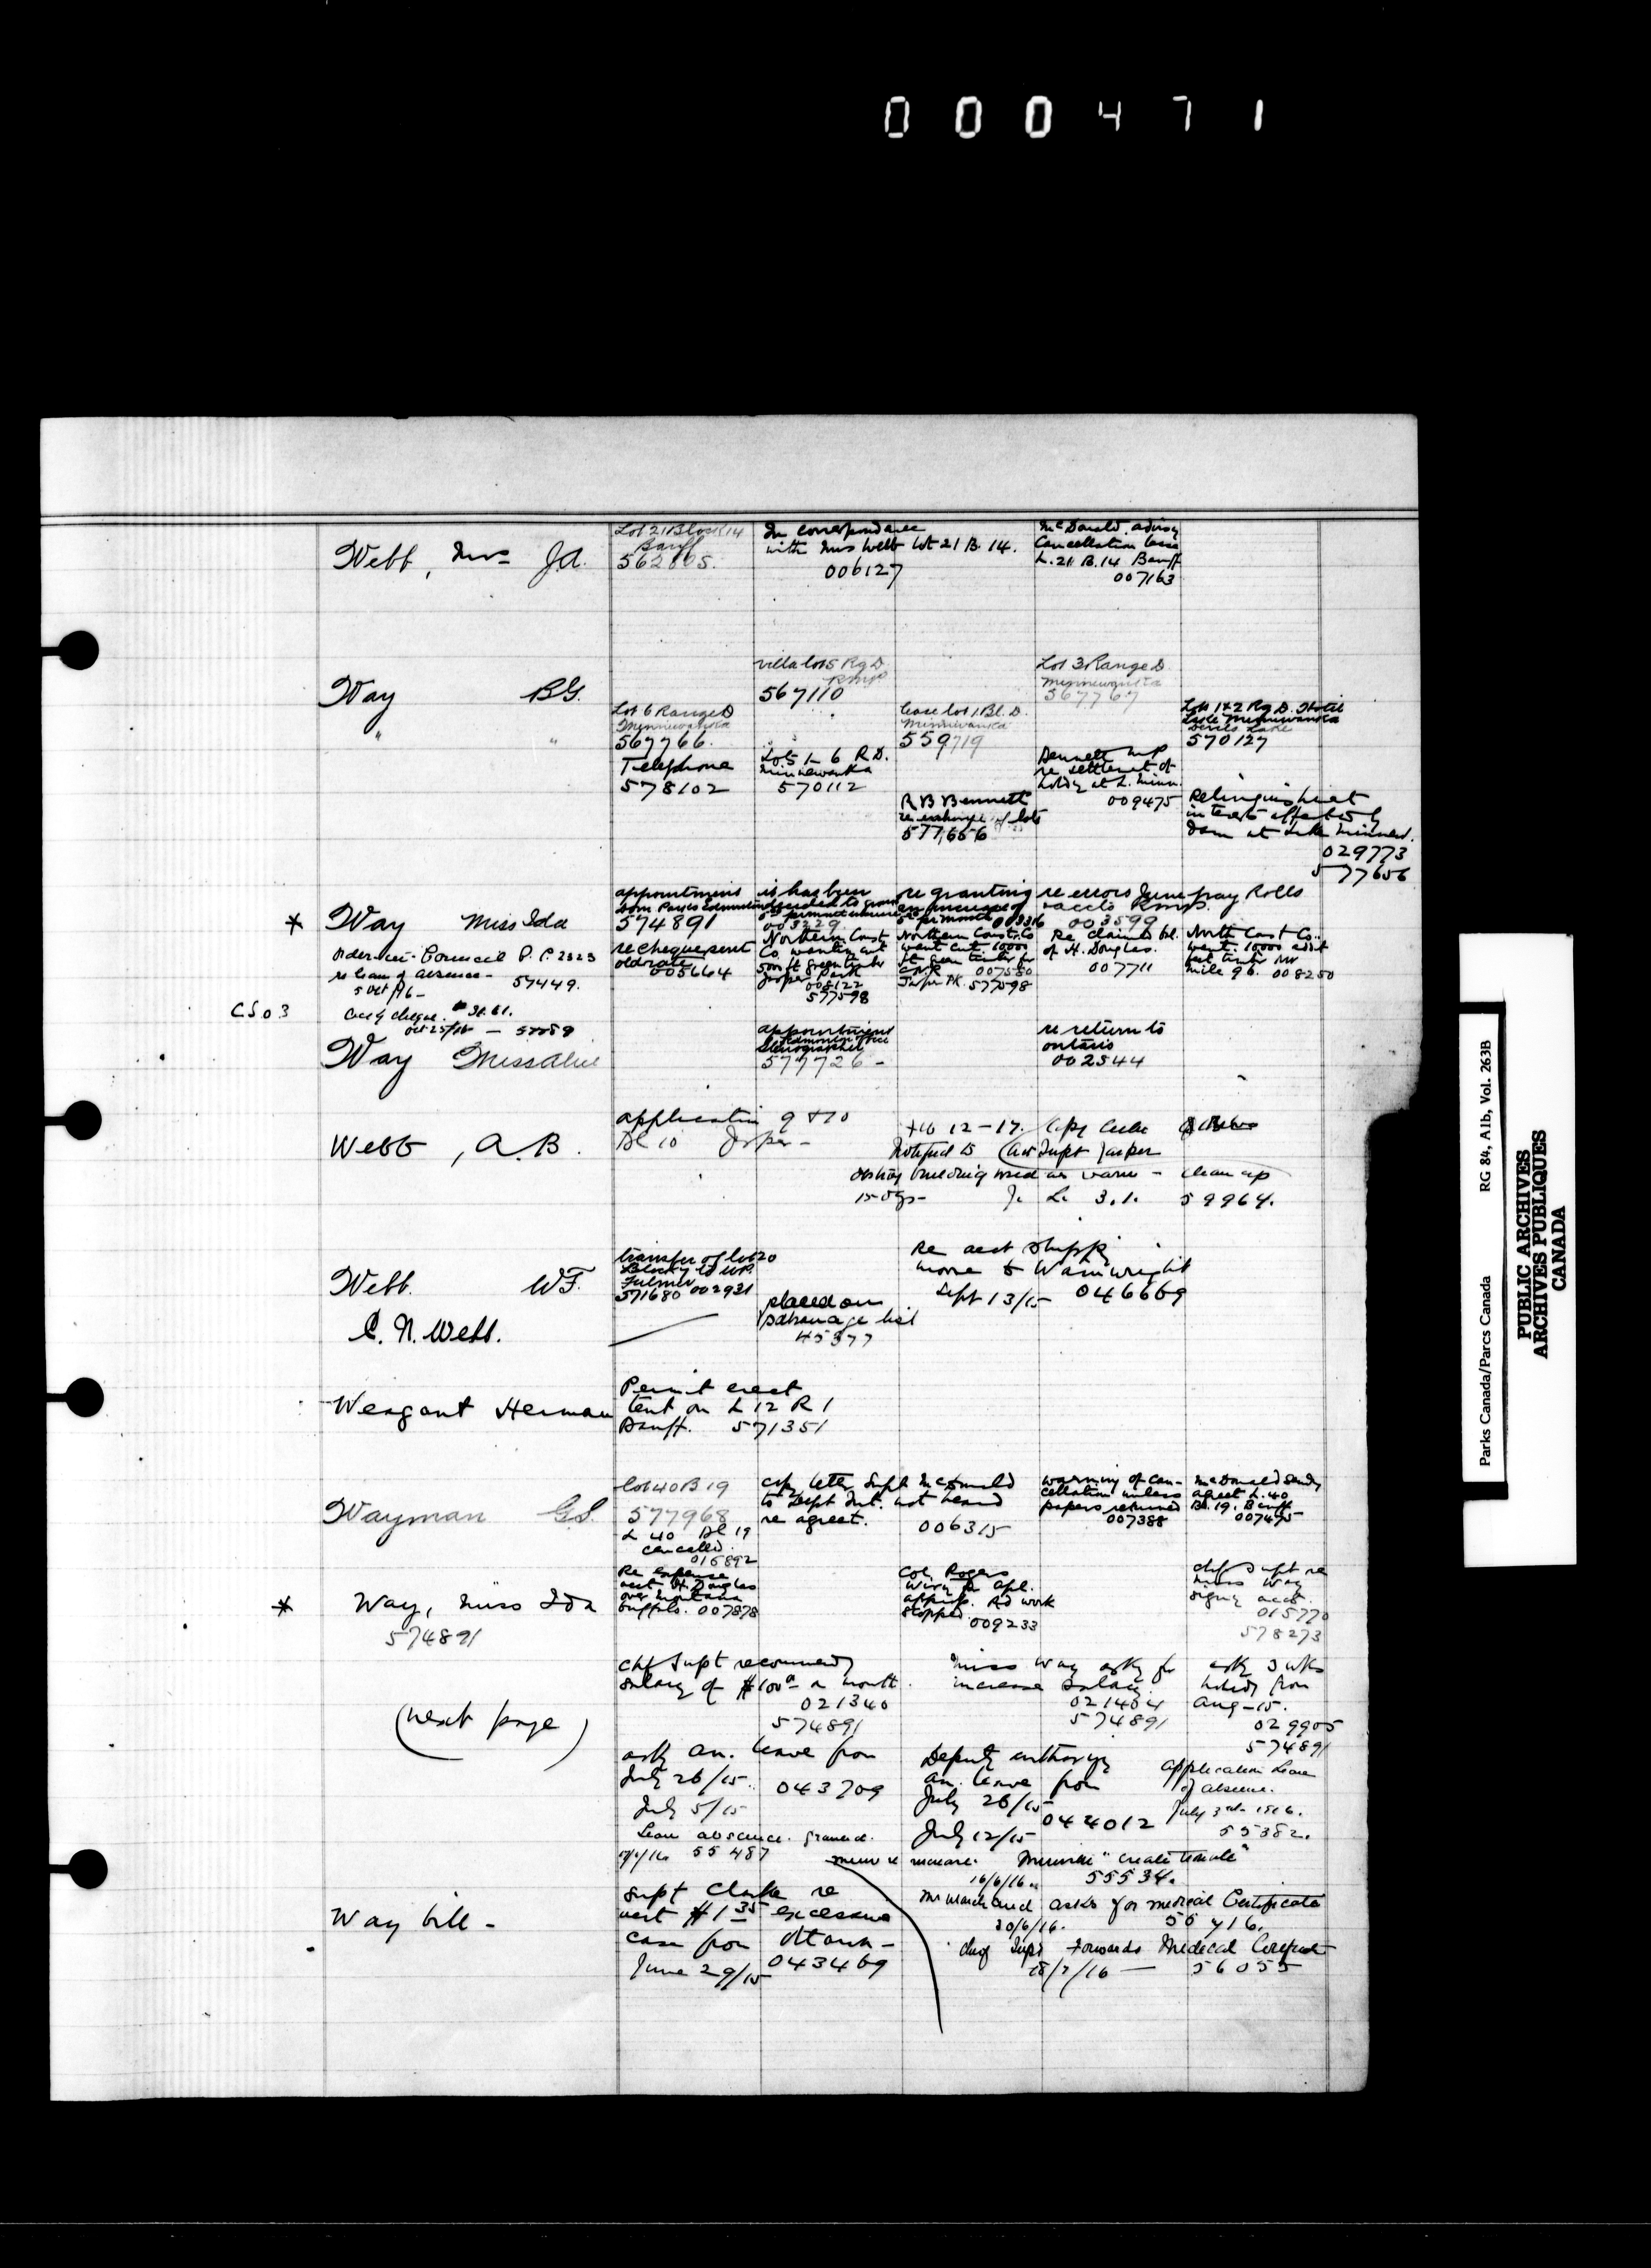 000471
Webb, Mrs J.A.
Lot 21 Block 14
Banff
562805.
In correspondance
with Mrs Webb Lot 21 B. 14.
006127
McDonald advisg
Cancellation lease
L. 21 B. 14 Banff
007163
Way B.G.
villa lot 5 Rg D.
567110
Lot 3 Range D
Minnewanka
567767
" "
Lot 6 Range D
Minnewanka
567766.
lease lot 1. Bl. D.
Minnewanka
559719
Lots 1 & 2 Rg D. Hotel
Lake Minnewanka
Devils Lake
570127
Telephone
578102
Lots 1-6 R.D.
Minnewanka
570112
R B Bennett
re exchange of lots
577656
Bennett MP
re settlement of
holdg at L. Minn.
009475
Relinquishment
interests affected by
Dam at Lake Minnew.
029773
577656
* Way Miss Ida
appointment
Dom Parks Edmonton
574891
is has been
003229
re granting
an increase of
per month 003316
re errors June pay Rolls
003599
Order-in-Council P.C. 2323
re leave of absence -
5 Oct/16 - 57449.
re cheque sent
old rate
005664
Northern Const
Co. wanting cut
500 ft green timber
Jasper Park
008122
577598
Northern Const. Co
want cut 10000
ft green timber for
C.N.R. 007550
Jasper Pk. 577598
Re claim to bl.
of H. Douglas.
007711
North Const Co.
want 10000 addt
feet timber
mile 96. 008250
C.S.03
cheque. $31.61.
Oct 25/16 -
Way Miss Alice
appointment
Edmonton office
Stenographer
577726 -
re return to
ontario
002544
Webb, A.B.
application 9 & 10
Bl 10 Jasper -
to 12-17.
notified to Act Supt Jasper
building used as barn - clean up
15 dys - J. L. 3.1. 59964.
Webb. W.F.
transfer of lot 20
Block 4 to W.P.
Fulmer
571680 002931
Re acct shippg
move to Wainwright
Sept 13/15 046669
C. N. Webb.
placed on
patronage list
45377
Weagant Herman
Permit erect
tent on L 12 R 1
Banff. 571351
Wayman G.S.
lot 40 B 19
577968
L 40 Bl 19
cancelled.
016892
copy letter Supt McDonald
to Dept Int. not heard
re agreet. 006315
warning of can-
cellation unless
papers returned
007388
McDonald sendg
agreet L. 40
Bl. 19. Banff
007475
* Way, Miss Ida
574891
Re expense
acct H. Douglas
over Montana
buffalo. 007878
Col. Rogers
wirg for apl.
appntp. Rd work
stopped. 009233
chf Supt re
Miss Way
signg acct.
015770
578273
(next page)
chf Supt recommendg
salary of $100 a month.
021340
574891
Miss Way askg for
increase salary.
021404
574891
askg 3 wks
holidy from
Aug-15.
029905
574891
askg an. leave from
July 26/15. 043709
July 5/15
Deputy authorizg
an. leave from
July 26/15 044012
July 12/15
Application Leave
of absence.
July 3rd 1916.
55382.
Leave absence. granted.
55487
memo re increase.
16/6/16. 55534.
Mr Marchand asks for medical Certificate
20/6/16. 55716.
Chief Supt Forwards Medical Certificate
18/7/16 - 56055
Way bill -
Supt Clarke re
acct $1.35 excessive
case from Ottawa -
June 29/15 043469
Parks Canada/Parcs Canada RG 84, A1b, Vol. 263B
PUBLIC ARCHIVES
ARCHIVES PUBLIQUES
CANADA